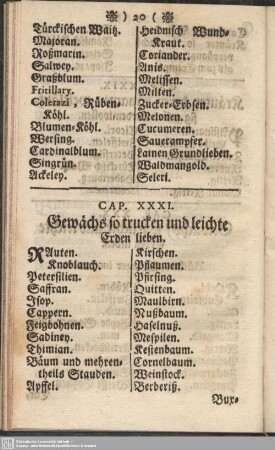 ) 20 (
Türckischen Waitz.
Majoran.
Roßmarin.
Salwey.
Graßblum.
Fritillary.
Colerazi Rüben-
Köhl.
Blumen-Köhl.
Wersing.
Cardinalblum.
Singrün.
Ackeley.
Heidnisch Wund-
Kraut.
Coriander.
Aniß.
Melissen.
Milten.
Zucker-Erbsen.
Melonen.
Cucumeren.
Sauerampfer.
Lainen Grundlieben.
Waldmangold.
Seleri.
CAP. XXXI.
Gewächs so trucken und leichte
Erden lieben.
RAuten.
Knoblauch.
Petersilien.
Saffran.
Isop.
Cappern.
Feigbohnen.
Sadiney.
Thimian.
Bäum und mehren-
theils Stauden.
Apffel.
Kirschen.
Pflaumen.
Pfirsing.
Quitten.
Maulbirn.
Nußbaum.
Haselnuß.
Mespilen.
Kestenbaum.
Cornelbaum.
Weinstock.
Berberitz.
Bux-